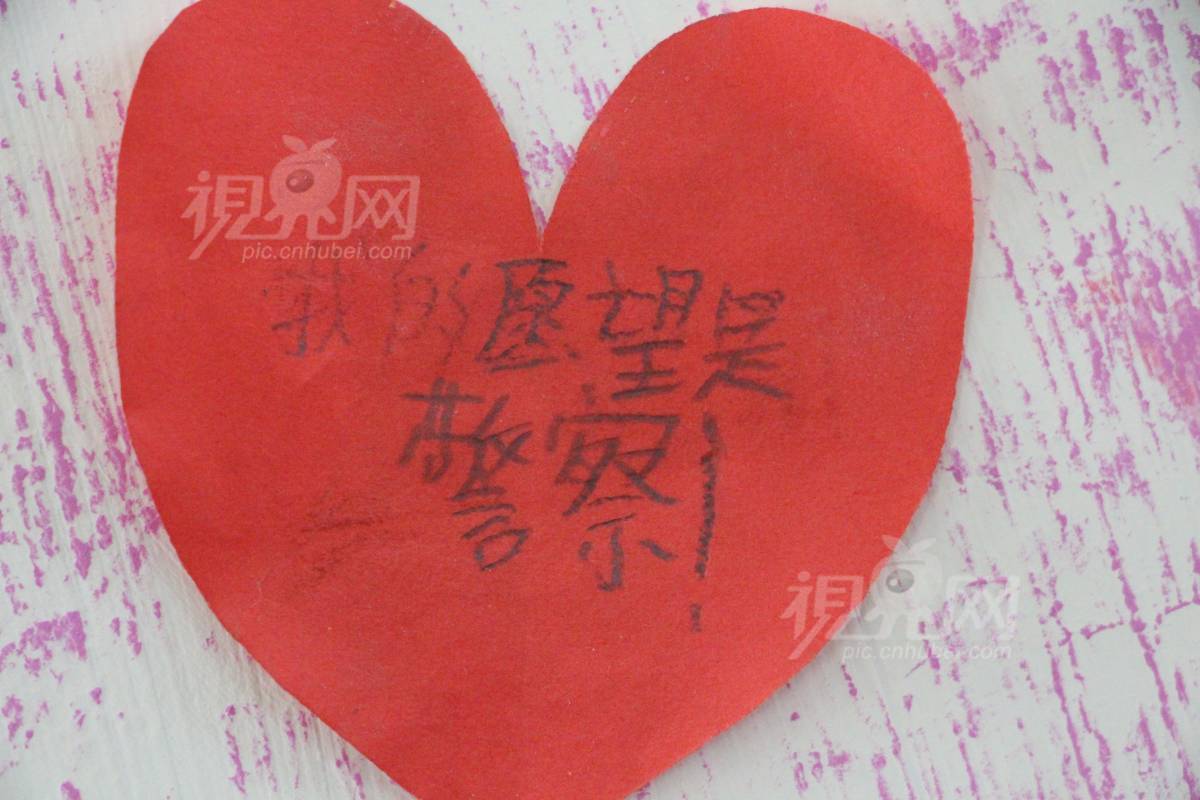 視界网
pic.cnhubei.com
我的愿望是
警察!
視界网
pic.cnhubei.com